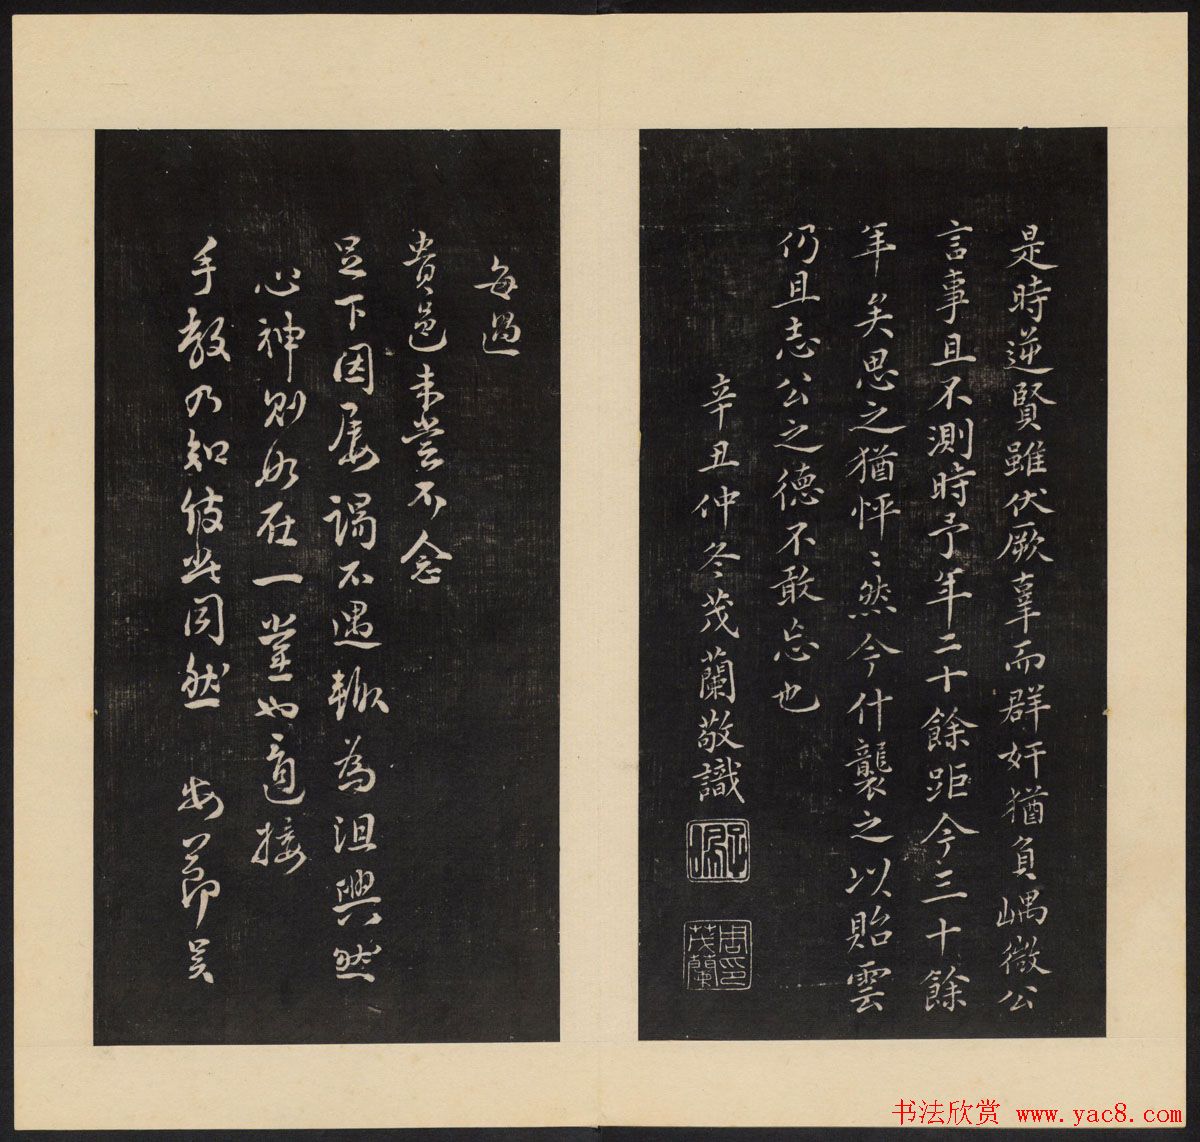 是時逆賢雖伏厥辜而群奸猶負嵎微公
言事且不測時予年二十餘距今三十餘
年矣思之猶怦〻然今什襲之以貽雲
仍且志公之德不敢忘也
辛丑仲冬茂蘭敬識
周茂蘭印
每過
貴邑未嘗不念
足下因屢謁不遇輒為沮興然
心神則如在一堂也適接
手教乃知彼此同然
书法欣赏 www.yac8.com